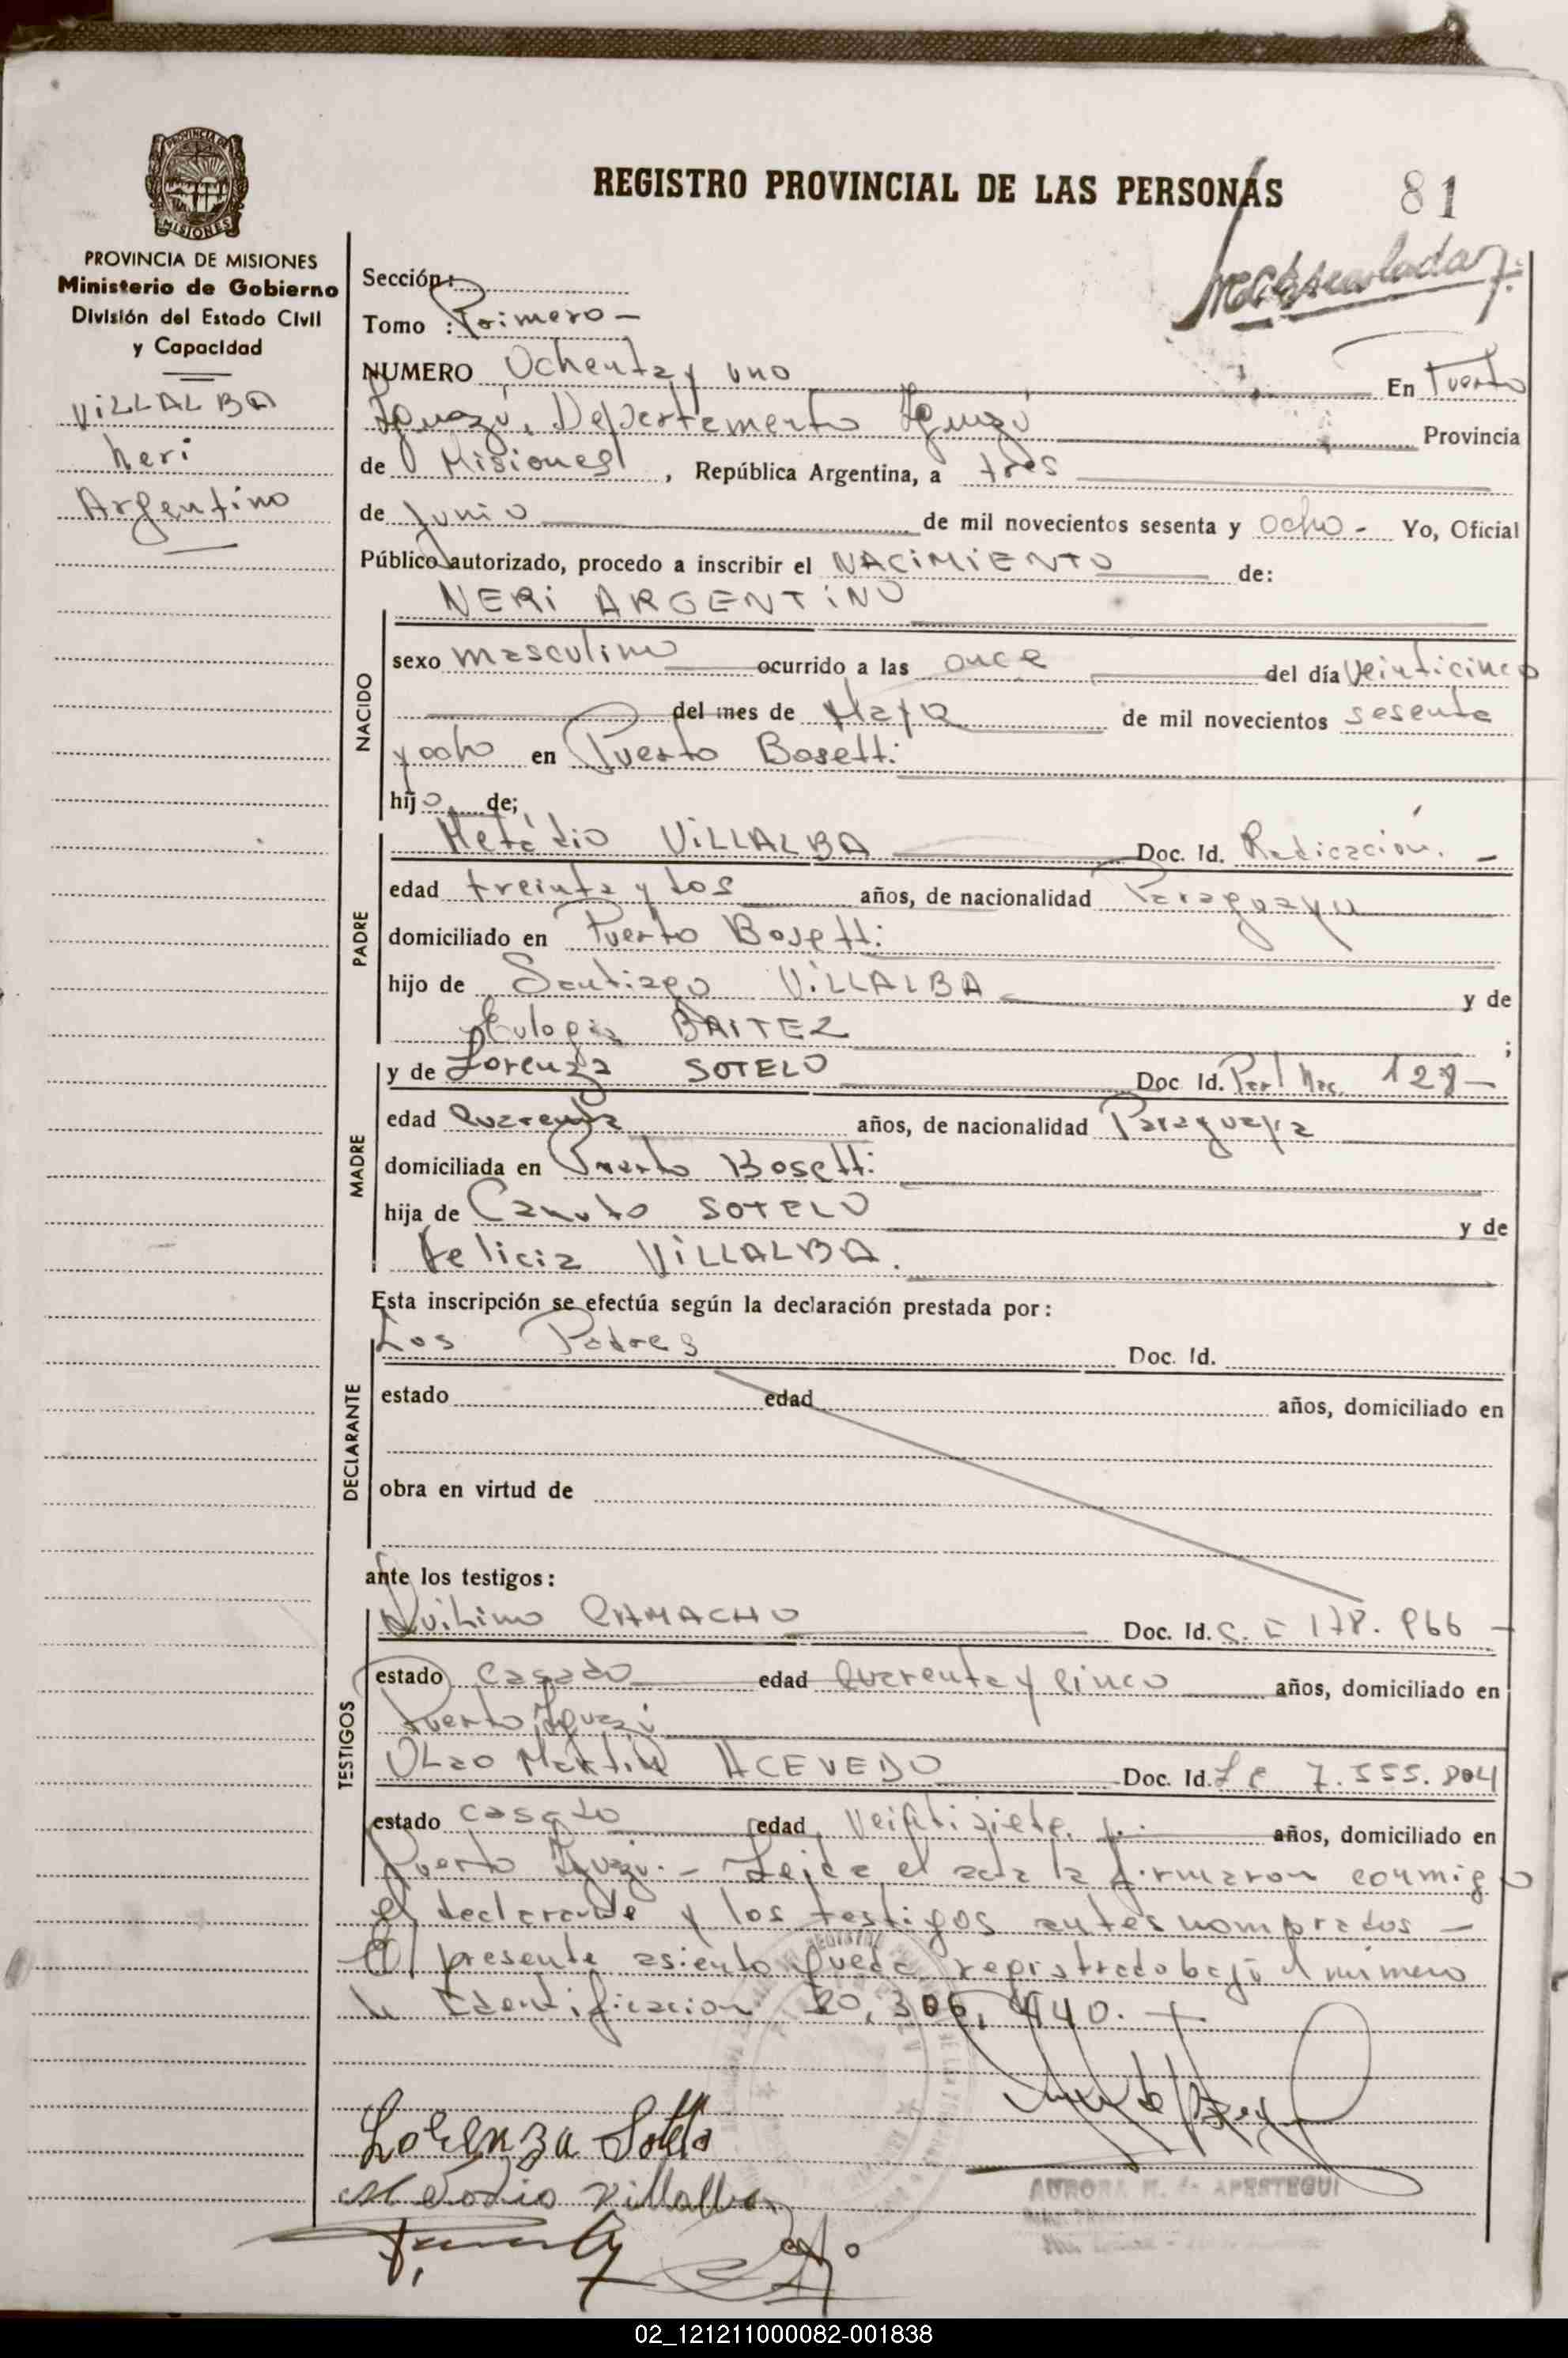 REGISTRO PROVINCIAL DE LAS PERSONAS
81
PROVINCIA DE MISIONES
MISIONES
PROVINCIA DE MISIONES
Ministerio de Gobierno
División del Estado Civil
y Capacidad
VILLALBA
Neri
Argentino
Sección:
Tomo : Primero -
NUMERO Ochenta y uno En Puerto
Iguazú, Departamento Iguazú Provincia
de Misiones, República Argentina, a tres
de Junio de mil novecientos sesenta y ocho - Yo, Oficial
Público autorizado, procedo a inscribir el NACIMIENTO de:
NERI ARGENTINO
NACIDO
sexo masculino ocurrido a las once del día Veinticinco
del mes de Mayo de mil novecientos sesenta
y ocho en Puerto Bosetti
hijo de;
PADRE
VILLALBA Doc. Id. Radicación. -
edad treinta y dos años, de nacionalidad Paraguaya
domiciliado en Puerto Bosetti
hijo de Santiago VILLALBA y de
Eulogia BAITEZ ;
MADRE
y de Lorenza SOTELO Doc Id. Part Nac.
edad Cuarenta años, de nacionalidad Paraguaya
domiciliada en Puerto Bosetti
hija de Canuto SOTELO y de
Felicia VILLALBA.
Esta inscripción se efectúa según la declaración prestada por:
DECLARANTE
Los Padres Doc. Id.
estado edad años, domiciliado en
obra en virtud de
ante los testigos:
TESTIGOS
CAMACHO Doc. Id. C. I 178. 966 -
estado Casado edad Cuarenta y Cinco años, domiciliado en
Puerto Iguazú
Martin ACEVEDO Doc. Id. L E 7.555.804
estado casado edad Veintisiete años, domiciliado en
Puerto Iguazú. - Leída el acta la firmaron conmigo
el declarante y los testigos antes nombrados -
El presente asiento queda registrado bajo el número
de Identificacion 20,306,440. -
Lorenza Sotelo
Melodio Villalba
AURORA M. de APESTEGUI
02_121211000082-001838